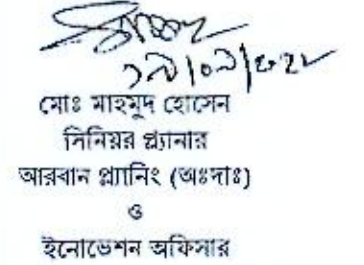 মোঃ মাহমুদ হোসেন
সিনিয়র প্ল্যানার
আরবান প্ল্যানিং (অঃদাঃ)
ও
ইনোভেশন অফিসার